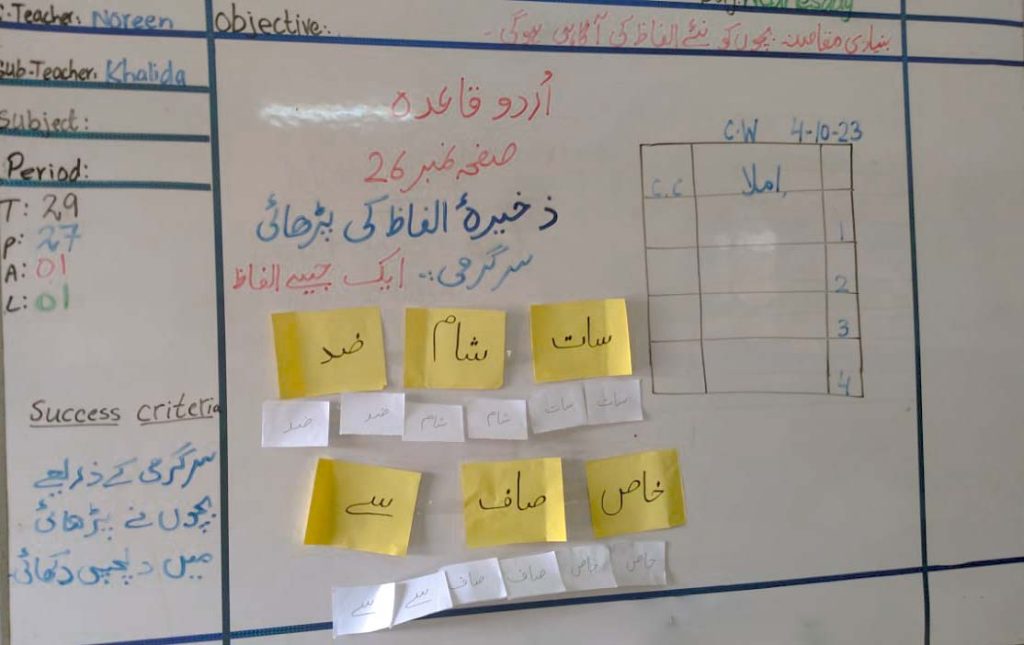 C.Teacher: Noreen
Objective:
Day: Wednesday
بنیادی مقاصد: بچوں کو نئے الفاظ کی آگاہی ہوگی۔
Sub-Teacher: Khalida
Subject:
Period:
T: 29
P: 27
A: 01
L: 01
اُردو قاعدہ
صفحہ نمبر 26
ذخیرۂ الفاظ کی پڑھائی
سرگرمی:۔ ایک جیسے الفاظ
C.W 4-10-23
املا C.C
1
2
3
4
سات شام ضد
سات سات شام شام ضد ضد
خاص صاف سے
خاص خاص صاف صاف سے سے
Success criteria
سرگرمی کے ذریعے
بچوں نے پڑھائی
میں دلچسپی دکھائی۔